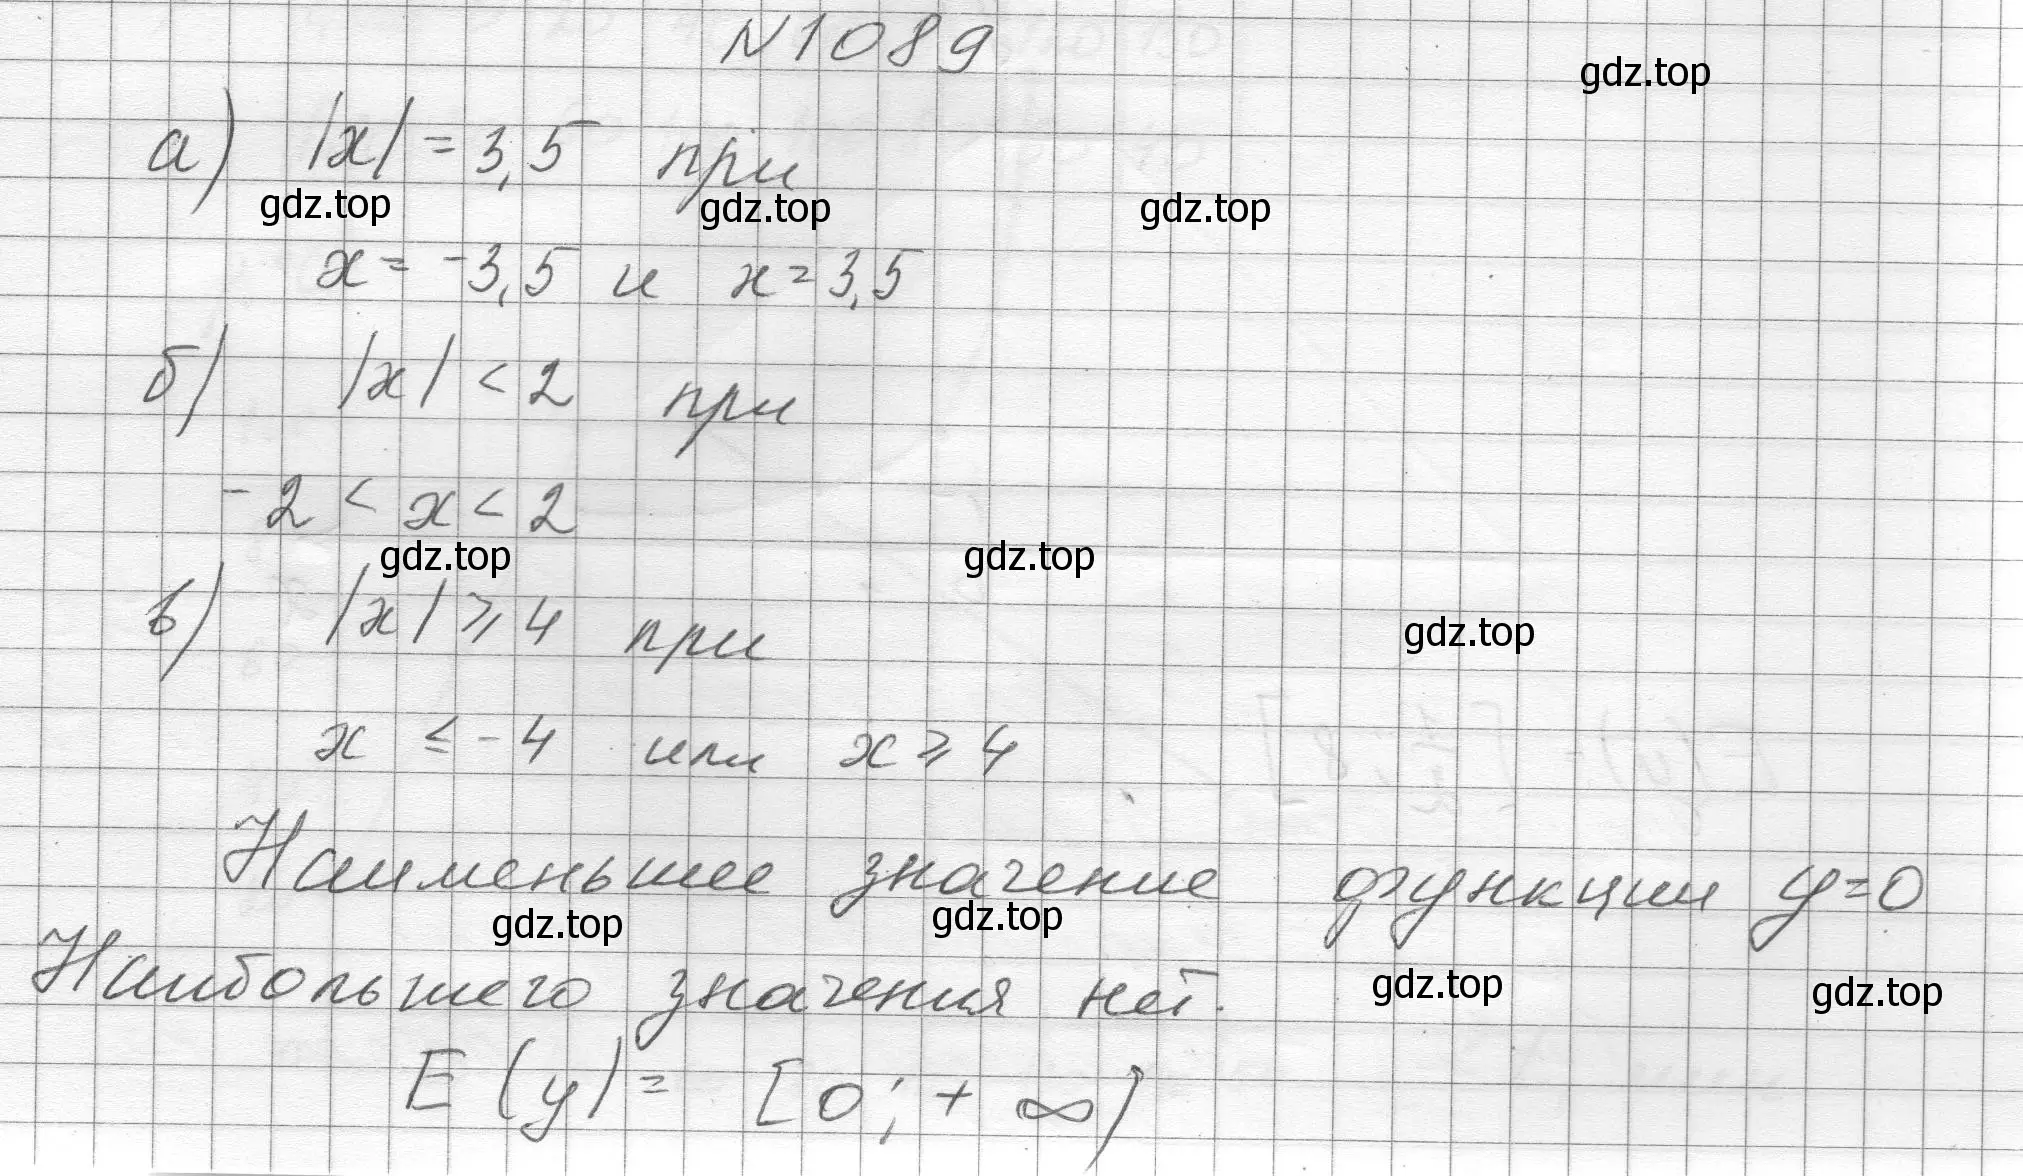 N1089
gdz.top
а) |x| = 3,5 при
gdz.top gdz.top gdz.top
x = -3,5 и x = 3,5
б) |x| < 2 при
-2 < x < 2
gdz.top gdz.top
в) |x| ⩾ 4 при
gdz.top
x ≤ -4 или x ⩾ 4
Наименьшее значение функции y=0
gdz.top gdz.top
Наибольшего значения нет.
gdz.top gdz.top
E(y) = [0; +∞)